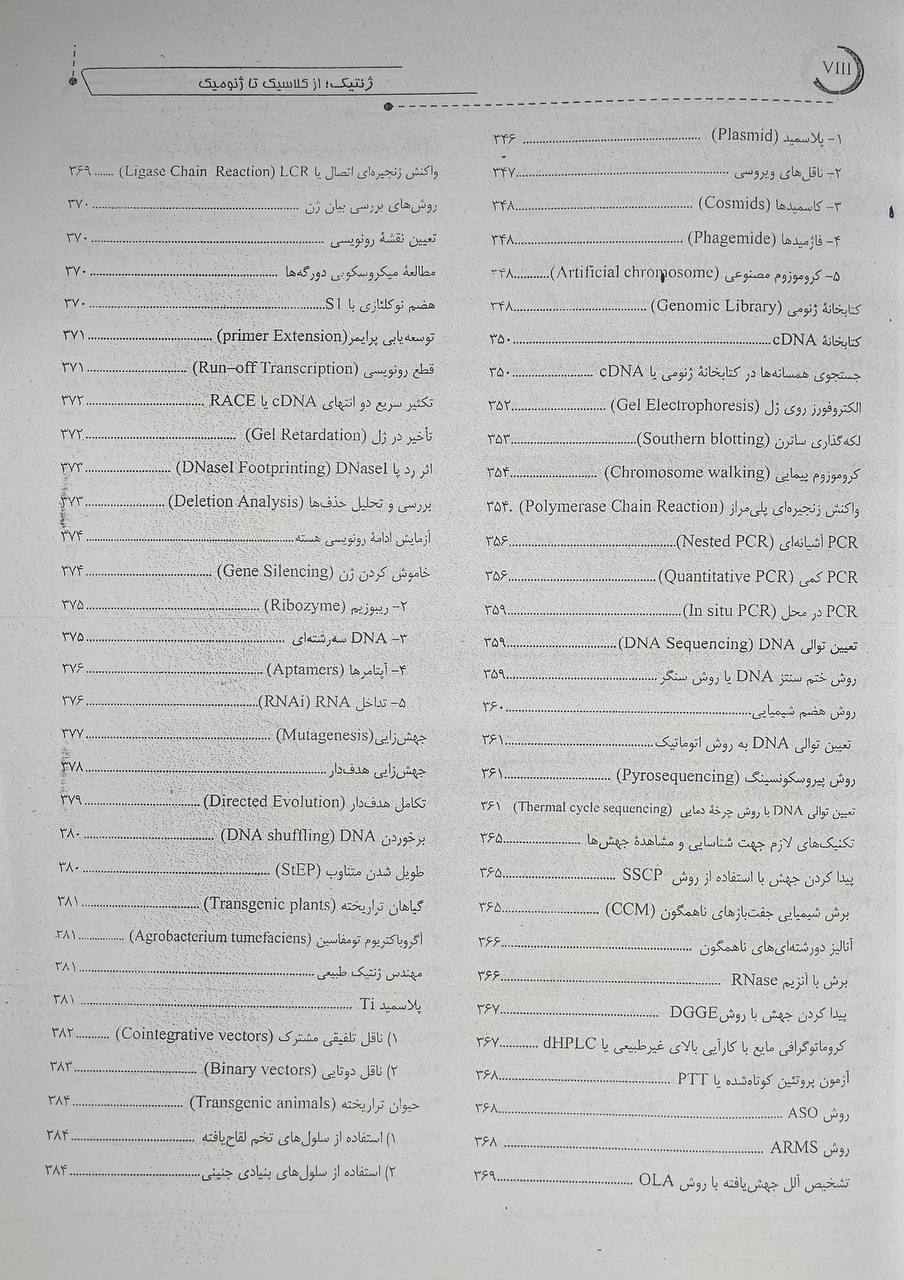 VIII
ژنتیک؛ از کلاسیک تا ژنومیک
۱- پلاسمید (Plasmid) ........ ۳۴۶
۲- ناقل‌های ویروسی ........ ۳۴۷
۳- کاسمیدها (Cosmids) ........ ۳۴۸
۴- فاژمیدها (Phagemide) ........ ۳۴۸
۵- کروموزوم مصنوعی (Artificial chromosome) ........ ۳۴۸
کتابخانهٔ ژنومی (Genomic Library) ........ ۳۴۸
کتابخانهٔ cDNA ........ ۳۵۰
جستجوی همسانه‌ها در کتابخانهٔ ژنومی یا cDNA ........ ۳۵۰
الکتروفورز روی ژل (Gel Electrophoresis) ........ ۳۵۲
لکه‌گذاری ساترن (Southern blotting) ........ ۳۵۳
کروموزوم پیمایی (Chromosome walking) ........ ۳۵۴
واکنش زنجیره‌ای پلی‌مراز (Polymerase Chain Reaction) . ۳۵۴
PCR آشیانه‌ای (Nested PCR) ........ ۳۵۶
PCR کمی (Quantitative PCR) ........ ۳۵۶
PCR در محل (In situ PCR) ........ ۳۵۹
تعیین توالی DNA (DNA Sequencing) ........ ۳۵۹
روش ختم سنتز DNA یا روش سنگر ........ ۳۵۹
روش هضم شیمیایی ........ ۳۶۰
تعیین توالی DNA به روش اتوماتیک ........ ۳۶۱
روش پیروسکونسینگ (Pyrosequencing) ........ ۳۶۱
تعیین توالی DNA با روش چرخهٔ دمایی (Thermal cycle sequencing) ۳۶۱
تکنیک‌های لازم جهت شناسایی و مشاهدهٔ جهش‌ها ........ ۳۶۵
پیدا کردن جهش با استفاده از روش SSCP ........ ۳۶۵
برش شیمیایی جفت‌بازهای ناهمگون (CCM) ........ ۳۶۵
آنالیز دورشته‌ای‌های ناهمگون ........ ۳۶۶
برش با آنزیم RNase ........ ۳۶۶
پیدا کردن جهش با روش DGGE ........ ۳۶۷
کروماتوگرافی مایع با کارآیی بالای غیرطبیعی یا dHPLC ........ ۳۶۷
آزمون پروتئین کوتاه‌شده یا PTT ........ ۳۶۸
روش ASO ........ ۳۶۸
روش ARMS ........ ۳۶۸
تشخیص آلل جهش‌یافته با روش OLA ........ ۳۶۹
واکنش زنجیره‌ای اتصال یا LCR (Ligase Chain Reaction) ...... ۳۶۹
روش‌های بررسی بیان ژن ........ ۳۷۰
تعیین نقشهٔ رونویسی ........ ۳۷۰
مطالعهٔ میکروسکوپی دورگه‌ها ........ ۳۷۰
هضم نوکلئازی با S1 ........ ۳۷۰
توسعه‌یابی پرایمر (primer Extension) ........ ۳۷۱
قطع رونویسی (Run–off Transcription) ........ ۳۷۱
تکثیر سریع دو انتهای cDNA یا RACE ........ ۳۷۲
تأخیر در ژل (Gel Retardation) ........ ۳۷۲
اثر رد پا DNaseI (DNaseI Footprinting) ........ ۳۷۳
بررسی و تحلیل حذف‌ها (Deletion Analysis) ........ ۳۷۳
آزمایش ادامهٔ رونویسی هسته ........ ۳۷۴
خاموش کردن ژن (Gene Silencing) ........ ۳۷۴
۲- ریبوزیم (Ribozyme) ........ ۳۷۵
۳- DNA سه‌رشته‌ای ........ ۳۷۵
۴- آپتامرها (Aptamers) ........ ۳۷۶
۵- تداخل RNA (RNAi) ........ ۳۷۶
جهش‌زایی (Mutagenesis) ........ ۳۷۷
جهش‌زایی هدف‌دار ........ ۳۷۸
تکامل هدف‌دار (Directed Evolution) ........ ۳۷۹
برخوردن DNA (DNA shuffling) ........ ۳۸۰
طویل شدن متناوب (StEP) ........ ۳۸۰
گیاهان تراریخته (Transgenic plants) ........ ۳۸۱
آگروباکتریوم تومفاسین (Agrobacterium tumefaciens) ........ ۳۸۱
مهندس ژنتیک طبیعی ........ ۳۸۱
پلاسمید Ti ........ ۳۸۱
۱) ناقل تلفیقی مشترک (Cointegrative vectors) ........ ۳۸۲
۲) ناقل دوتایی (Binary vectors) ........ ۳۸۳
حیوان تراریخته (Transgenic animals) ........ ۳۸۴
۱) استفاده از سلول‌های تخم لقاح‌یافته ........ ۳۸۴
۲) استفاده از سلول‌های بنیادی جنینی ........ ۳۸۴